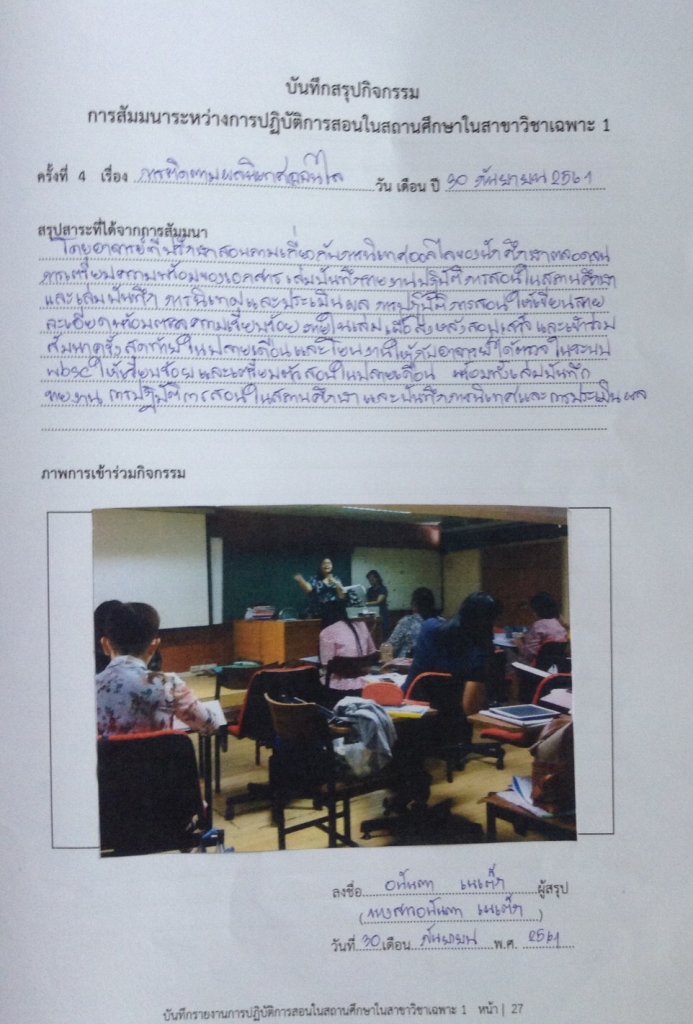 บันทึกสรุปกิจกรรม
การสัมมนาระหว่างการปฏิบัติการสอนในสถานศึกษาในสาขาวิชาเฉพาะ 1
ครั้งที่ 4 เรื่อง การติดตามผลนิเทศออนไลน์ วัน เดือน ปี 30 กันยายน 2561
สรุปสาระที่ได้จากการสัมมนา
โดยอาจารย์ที่ปรึกษาสอบถามเกี่ยวกับการนิเทศออนไลน์ของนักศึกษาตลอดจน
การเตรียมความพร้อมของเอกสาร เล่มบันทึกรายงานปฏิบัติการสอนในสถานศึกษา
และเล่มบันทึก การนิเทศและประเมินผล การปฏิบัติการสอน ให้เขียนราย
ละเอียดพร้อมตรวจความเรียบร้อย ภายในเล่ม เพื่อส่งหลังสอบเสร็จ และเข้าร่วม
สัมมนาครั้งสุดท้ายในปลายเดือนและโอนงานให้กับอาจารย์ได้ตรวจ ในระบบ
wbsc ให้เรียบร้อย และเตรียมตัวสอบในปลายเดือน พร้อมทั้งเล่มบันทึก
รายงาน การปฏิบัติการสอนในสถานศึกษา และบันทึกการนิเทศและการประเมินผล
ภาพการเข้าร่วมกิจกรรม
ลงชื่อ ผู้สรุป
(นางสาว )
วันที่ 30 เดือน กันยายน พ.ศ. 2561
บันทึกรายงานการปฏิบัติการสอนในสถานศึกษาในสาขาวิชาเฉพาะ 1 หน้า | 27